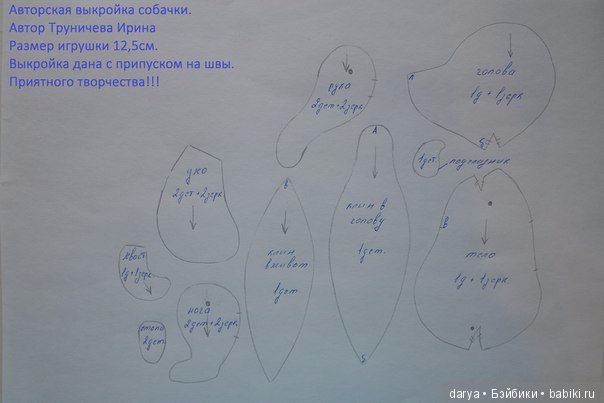 Авторская выкройка собачки.
Автор Труничева Ирина
Размер игрушки 12,5см.
Выкройка дана с припуском на швы.
Приятного творчества!!!
рука
2дет+2зерк
A
голова
1д + 1зерк
Б
A
клин в
голову
1дет.
Б
1дет.
подглазник
ухо
2дет+2зерк
В
клин
в живот
1дет.
В
тело
1д + 1зерк
хвост
1д+1зерк
нога
2дет+2зерк
стопа
2дет.
darya • Бэйбики • babiki.ru